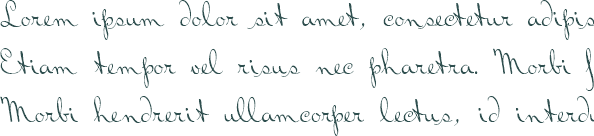 Lorem ipsum dolor sit amet, consectetur adipis
Etiam tempor vel risus nec pharetra. Morbi f
Morbi hendrerit ullamcorper lectus, id interd